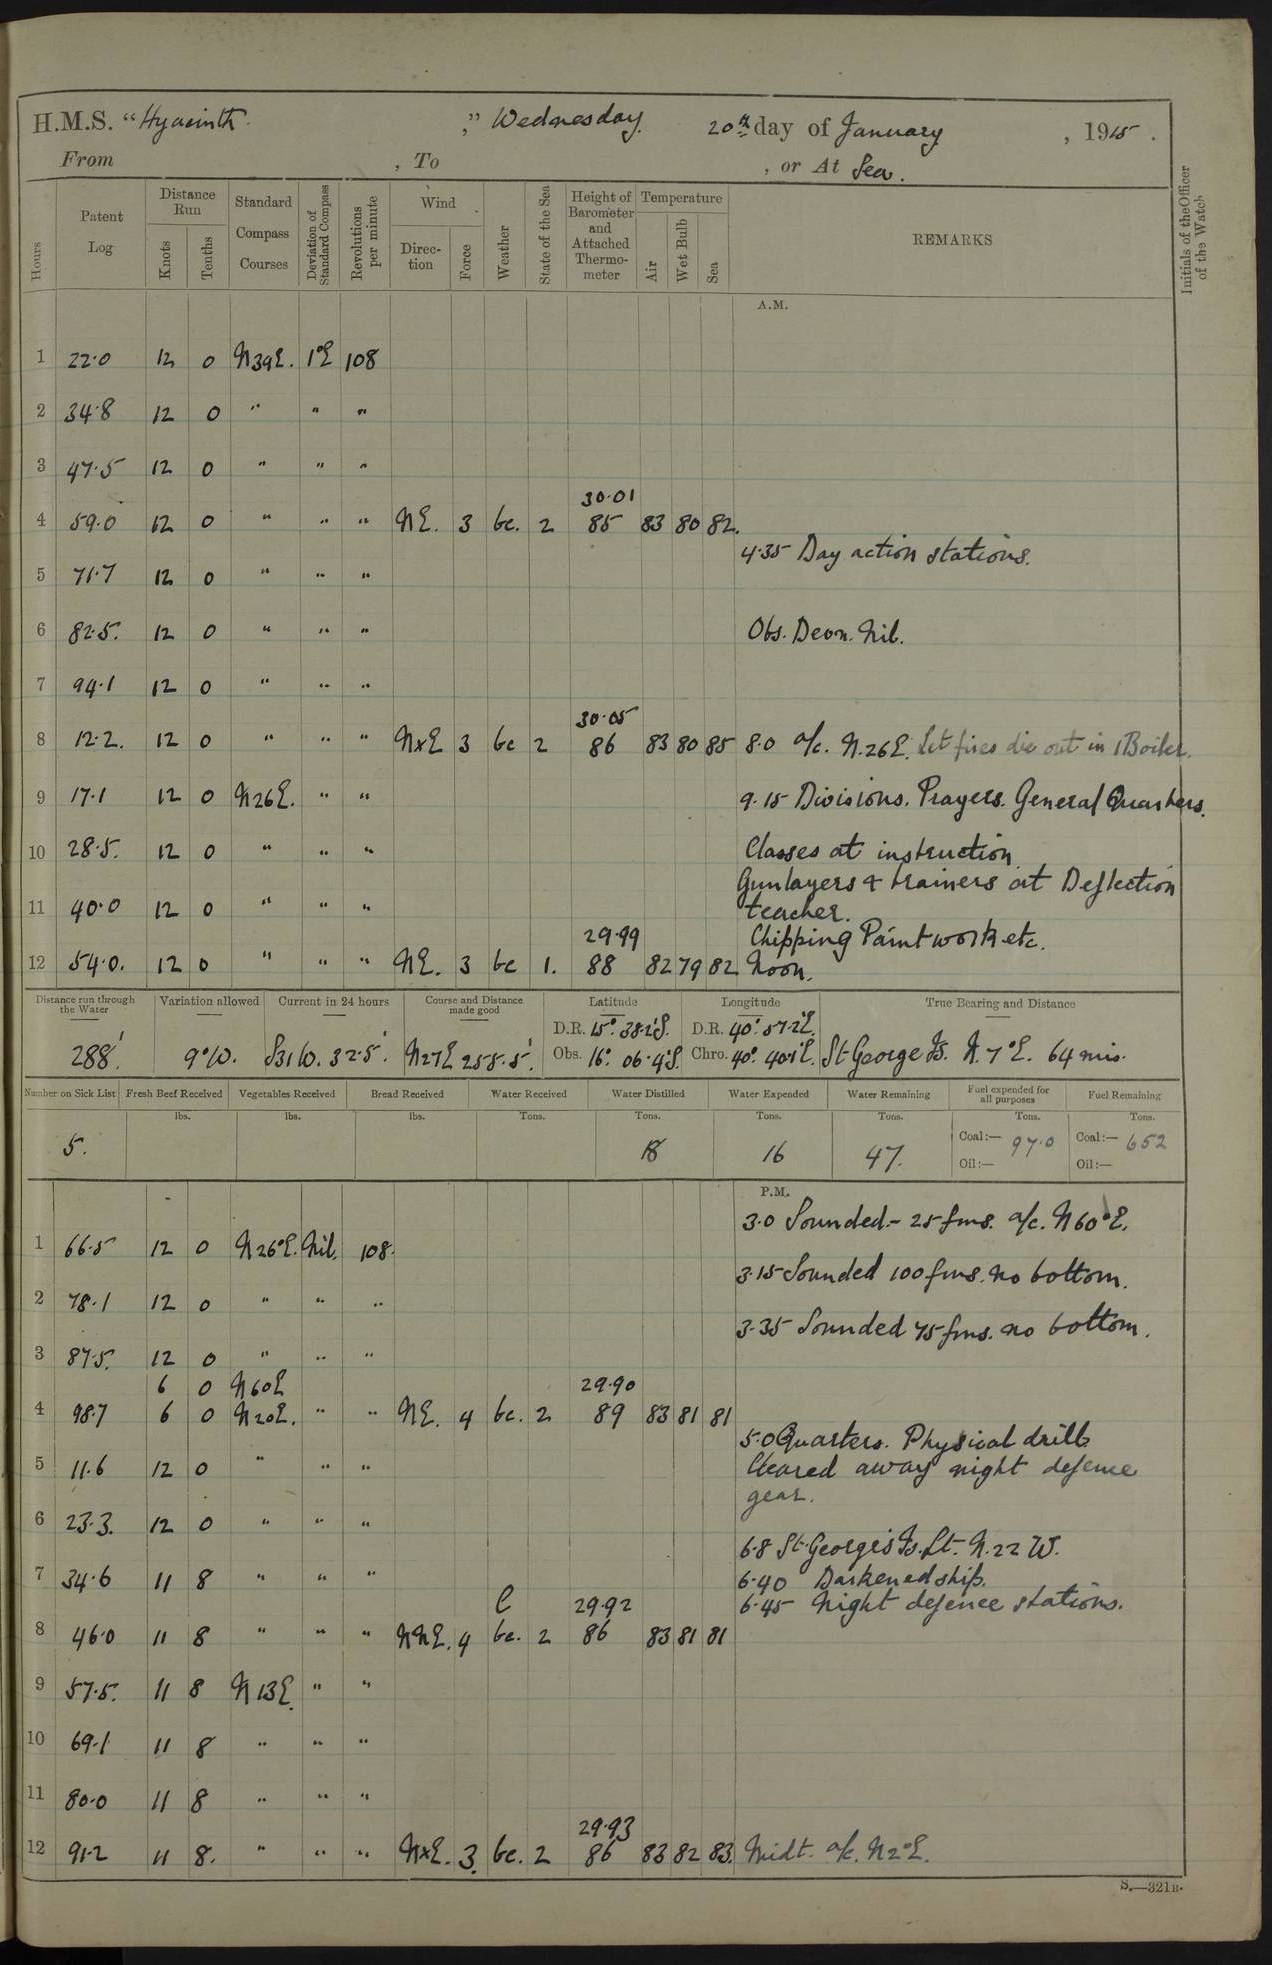 H.M.S. "Hyacinth," Wednesday 20th day of January, 1915.
From , To , or At Sea.
Hours
Patent Log
Distance Run
Knots
Tenths
Standard Compass Courses
Deviation of Standard Compass
Revolutions per minute
Wind
Direction
Force
Weather
State of the Sea
Height of Barometer and Attached Thermometer
Temperature
Air
Wet Bulb
Sea
REMARKS
Initials of the Officer of the Watch
A.M.
1 22.0 12 0 N39E. 1°E 108
2 34.8 12 0 " " "
3 47.5 12 0 " " "
30.01
4 59.0 12 0 " " " NE. 3 bc. 2 85 83 80 82.
4.35 Day action stations.
5 71.7 12 0 " " "
6 82.5. 12 0 " " " Obs. Devn. Nil.
7 94.1 12 0 " " "
30.05
8 12.2. 12 0 " " " NxE 3 bc 2 86 83 80 85 8.0 a/c. N.26E. Let fires die out in 1 Boiler.
9 17.1 12 0 N26E. " " 9.15 Divisions. Prayers. General Quarters.
10 28.5. 12 0 " " " Classes at instruction
Gunlayers & trainers at Deflection
11 40.0 12 0 " " " teacher.
29.99 Chipping Paintwork etc.
12 54.0. 12 0 " " " NE. 3 bc 1. 88 82 79 82 Noon.
Distance run through the Water
Variation allowed
Current in 24 hours
Course and Distance made good
Latitude
Longitude
True Bearing and Distance
288' 9°W. S31W. 32.5' N27E 255.5'
D.R. 15° 38.2'S. D.R. 40° 57.2'E.
Obs. 16° 06.4'S. Chro. 40° 40.1'E. St George Is. N.7°E. 64 mis.
Number on Sick List Fresh Beef Received Vegetables Received Bread Received Water Received Water Distilled Water Expended Water Remaining Fuel expended for all purposes Fuel Remaining
lbs. lbs. lbs. Tons. Tons. Tons. Tons. Tons. Tons.
5. 18 16 47. Coal:— 97.0 Coal:— 652
Oil:— Oil:—
P.M.
3.0 Sounded - 25 fms. a/c. N60°E.
1 66.5 12 0 N26°E. Nil. 108.
3.15 Sounded 100 fms. no bottom.
2 78.1 12 0 " " "
3.35 Sounded 75 fms. no bottom.
3 87.5. 12 0 " " "
6 0 N60E 29.90
4 98.7 6 0 N20E. " " NE. 4 bc. 2 89 83 81 81
5.0 Quarters. Physical drill
5 11.6 12 0 " " " Cleared away night defence
gear.
6 23.3. 12 0 " " "
6.8 St. George's Is. Lt. N.22 W.
7 34.6 11 8 " " " 6.40 Darkened ship.
C 29.92 6.45 Night defence stations.
8 46.0 11 8 " " " NNE. 4 bc. 2 86 83 81 81
9 57.5. 11 8 N13E. " "
10 69.1 11 8 " " "
11 80.0 11 8 " " "
29.93
12 91.2 11 8. " " " NxE. 3. bc. 2 86 83 82 83. Midt. a/c. N2°E.
S.—321B.